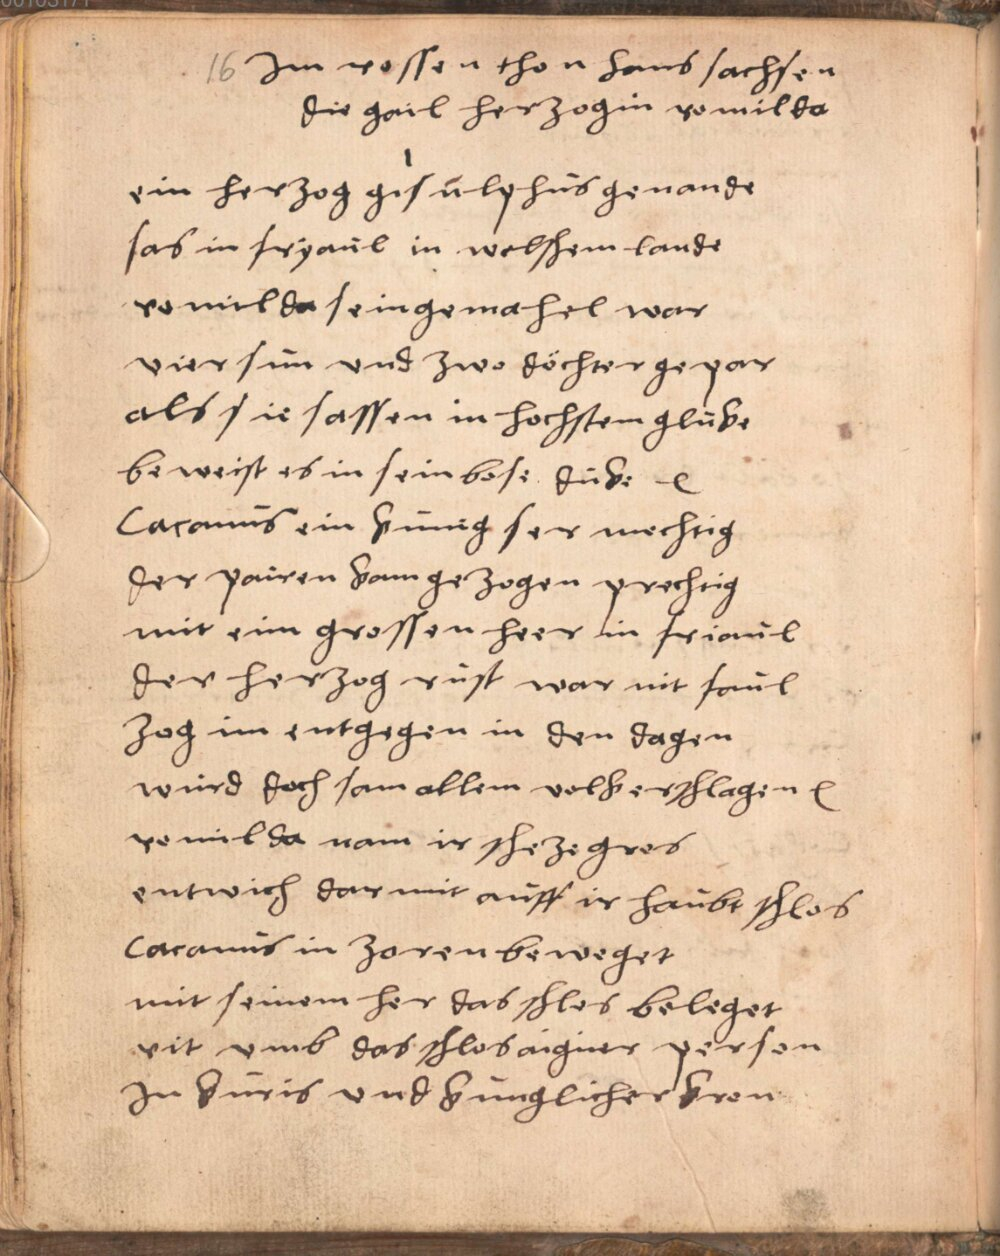 16 Im rossen thon hans sachsen
die gail herzogin romilda
1
ein herzog gisulphus genande
sas in fryaul in welschem lande
romilda sein gemahel war
vier sun und zwo döchter gepar
als sie sassen in hochstem gluke
beweist es in sein bose duke
Cacanus ein kunig ser mechtig
der pairen kam gezogen prechtig
mit eim grossen heer in friaul
der herzog rust war nit faul
zog im entgegen in den dagen
wurd doch sam allem volk erschlagen
romilda nam ir scheze gros
entwich dar mit auff ir haubt schlos
Cacanus in zoren beweget
mit seinem her das schlos beleget
rit vmb das schlos aigner person
In kuris vnd kunglicher kron